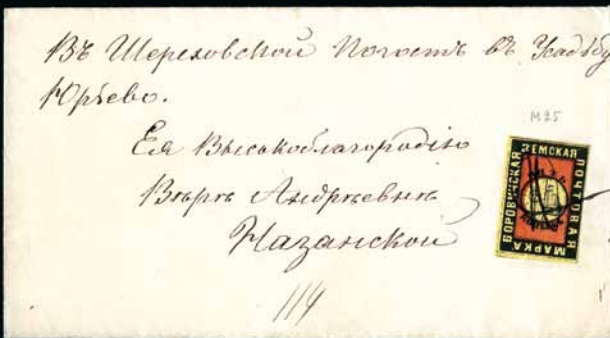 Въ Шереховской Погостъ въ Усадьбу
Юрьево.
Ея Высокоблагородiю
Вѣрѣ Андреевнѣ
Казанской
114
М25
БОРОВИЧСКАЯ ЗЕМСКАЯ ПОЧТОВАЯ МАРКА